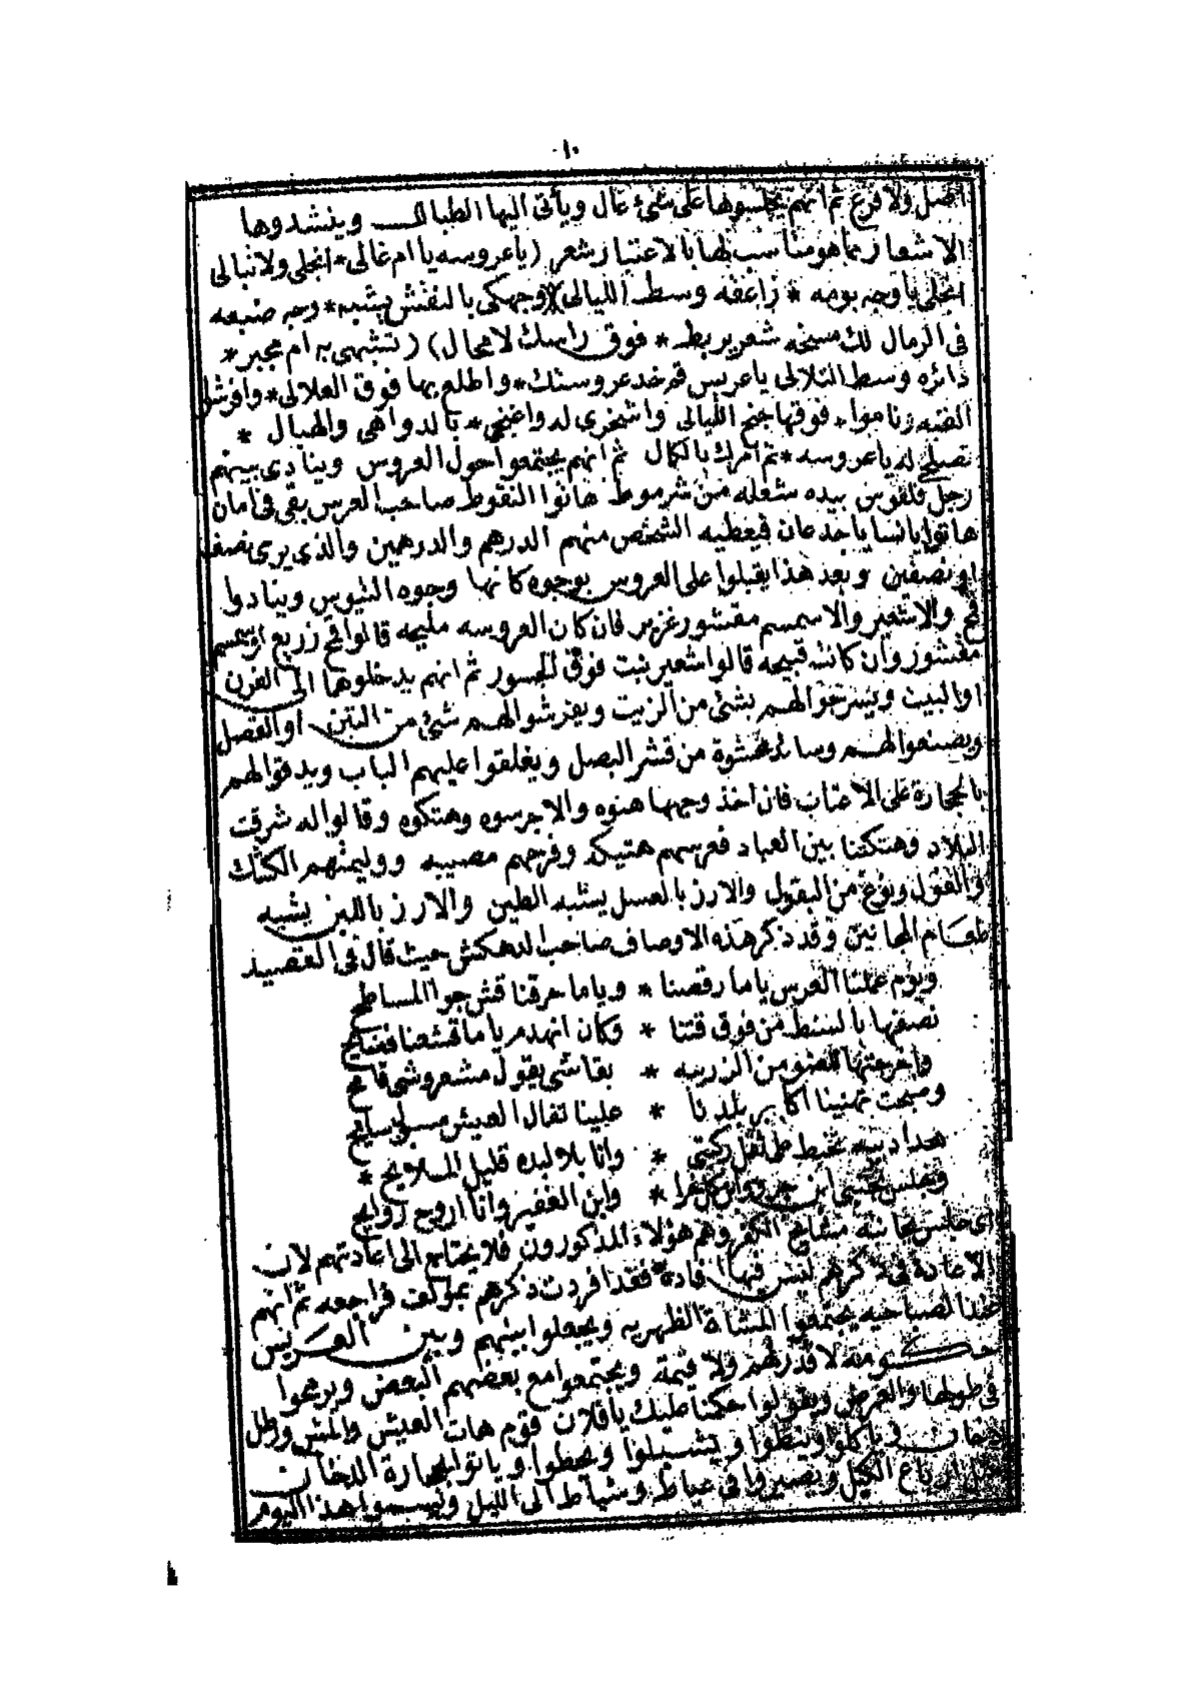 ١٠
اصل ولا فرع ثم انهم يجلسوها على شئ عال ويأتى اليها الطبال وينشدوها
الاشعار مما هو مناسب لها بالاعتبار شعر (يا عروسه يا ام غالى * انجلى ولا تبالى
انجلى يا وجه بومه * زاعقه وسط الليالى) (وجهكى بالنقش يشبه * وجه ضبعه
فى الرمال لك مسيخه شعر يربط * فوق راسك لا محال) (تشبهى به ام مجبر *
دائره وسط التلالى يا عريس قم خد عروستك * واطلع بها فوق العلالى * وافرشل
القبه وناموا * فوقها جنح الليالى واشخرى له واغنجى * بالدواهى والهبال *
تصلحى له يا عروسه * تم امرك بالكمال ثم انهم يجتمعوا حول العروس وينادى بينهم
رجل قلفوس بيده شعله من شرموط هاتوا النقوط صاحب العرس بقى فى امان
هاتوا يا نسا يا جدعان فيعطيه الشخص منهم الدرهم والدرهمين والذى يرى نصف
او نصفين وبعد هذا يقبلوا على العروس بوجوه كانها وجوه التيوس وينادوا
قمح والاشعير والاسمسم مقشور غزير فان كان العروسه مليحه قالوا قمح زريع او سمسم
مقشور وان كانت قبيحه قالوا شعير بنت فوق الجسور ثم انهم يدخلوها الى الفرن
او البيت ويسرجوا لهم بشئ من الزيت ويفرشوا لهم شئ من التبن او القصل
ويصنعوا لهم وسائد محشوة من قشر البصل ويغلقوا عليهم الباب ويدقوا لهم
بالحجارة على الاعتاب فان اخذ وجهها هنوه والا جرسوه وهتكوه وقالوا له شرقت
البلاد وهتكتنا بين العباد فعرسهم هتيكه وفرحهم مصيبه ووليمتهم الكشك
والفول ونوع من البقول والارز بالعسل يشبه الطين والارز باللبن يشبه
طعام المجانين وقد ذكر هذه الاوصاف صاحب الدهكش حيث قال فى القصيد
ويوم عملنا العرس ياما رقصنا * وياما حرقنا قش جوا المساطح
نصفها بالنبط من فوق قتنا * وكان انهدم ياما قشعنا فضايح
واخرجتها للضو من الزريبه * بقا شى يقول مشعر وشى قامح
وصبحت تهنينا اكابر بلدنا * علينا تقال العيش مسلوى سايح
وانا بلا لبده قليل الملايح *
وابن الغفير وانا اروح روايح
اى جلس بجانبه مشايخ الكفر وهم هؤلاء المذكورون فلا يحتاج الى اعادتهم لان
الاعادة فى ذكرهم ليس فيها افادة فقد افردت ذكرهم بمؤلف فراجعه ثم انهم
عند الصباحيه يجتمعوا المشاة الظهريه ويجعلوا بينهم وبين العريس
حكومة لا قدر لهم ولا قيمة ويجتمعوا مع بعضهم البعض وبرمحوا
فى طولها والعرض ويقولوا حكمنا عليك يا فلان قوم هات العيش والمش ورطل
الدخان وياكلوا وينطوا ويتشيلوا ويحطوا وياتوا بحجارة الدخان
ارباع الكيل ويصيروا فى عياط وشياط الى الليل ويسموا هذا اليوم